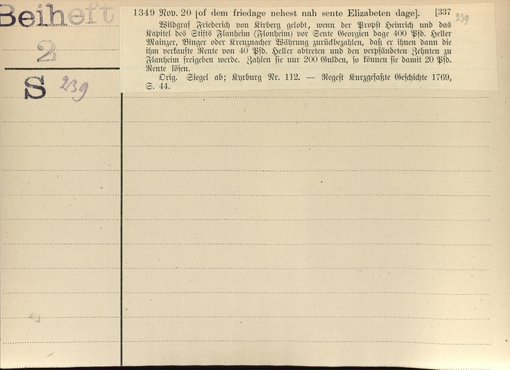 Beiheft
2
S 239
1349 Nov. 20 [of dem friedage nehest nah sente Elizabeten dage]. [337
239
Wildgraf Friederich von Kirberg gelobt, wenn der Propst Heinrich und das
Kapitel des Stifts Flanheim (Flonheim) vor Sente Georgien dage 400 Pfd. Heller
Mainzer, Binger oder Kreuznacher Währung zurückbezahlen, daß er ihnen dann die
ihm verkaufte Rente von 40 Pfd. Heller abtreten und den verpfändeten Zehnten zu
Flanheim freigeben werde. Zahlen sie nur 200 Gulden, so können sie damit 20 Pfd.
Rente lösen.
Orig. Siegel ab; Kyrburg Nr. 112. — Regest Kurzgefaßte Geschichte 1769,
S. 44.